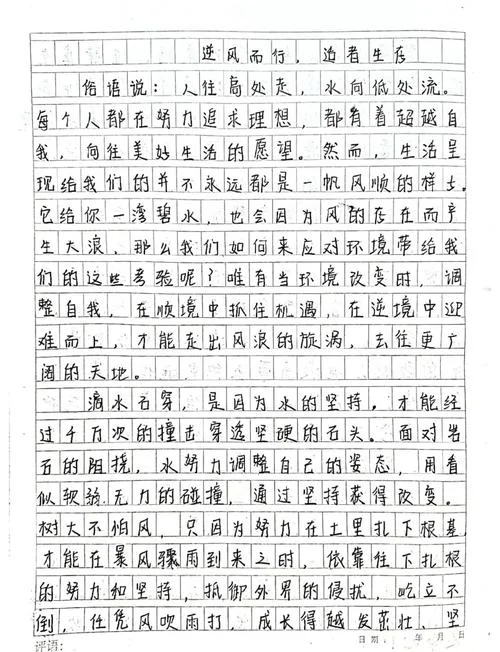 逆风而行，适者生存
俗语说：人往高处走，水向低处流。
每个人都在努力追求理想，都有着超越自
我，向往美好生活的愿望。然而，生活呈
现给我们的并不永远都是一帆风顺的样子。
它给你一湾碧水，也会因为风的存在而产
生大浪，那么我们如何来应对环境带给我
们的这些考验呢？唯有当环境改变时，调
整自我，在顺境中抓住机遇，在逆境中迎
难而上，才能走出风浪的旋涡，去往更广
阔的天地。
滴水石穿，是因为水的坚持，才能经
过千万次的撞击穿透坚硬的石头。面对岩
石的阻挠，水努力调整自己的姿态，用看
似软弱无力的碰撞，通过坚持获得改变。
树大不怕风，只因为努力在土里扎下根基，
才能在暴风骤雨到来之时，依靠往下扎根
的努力和坚持，抵御外界的侵扰，屹立不
倒，任凭风吹雨打，成长得越发茁壮、坚
评语： 日期： 年 月 日